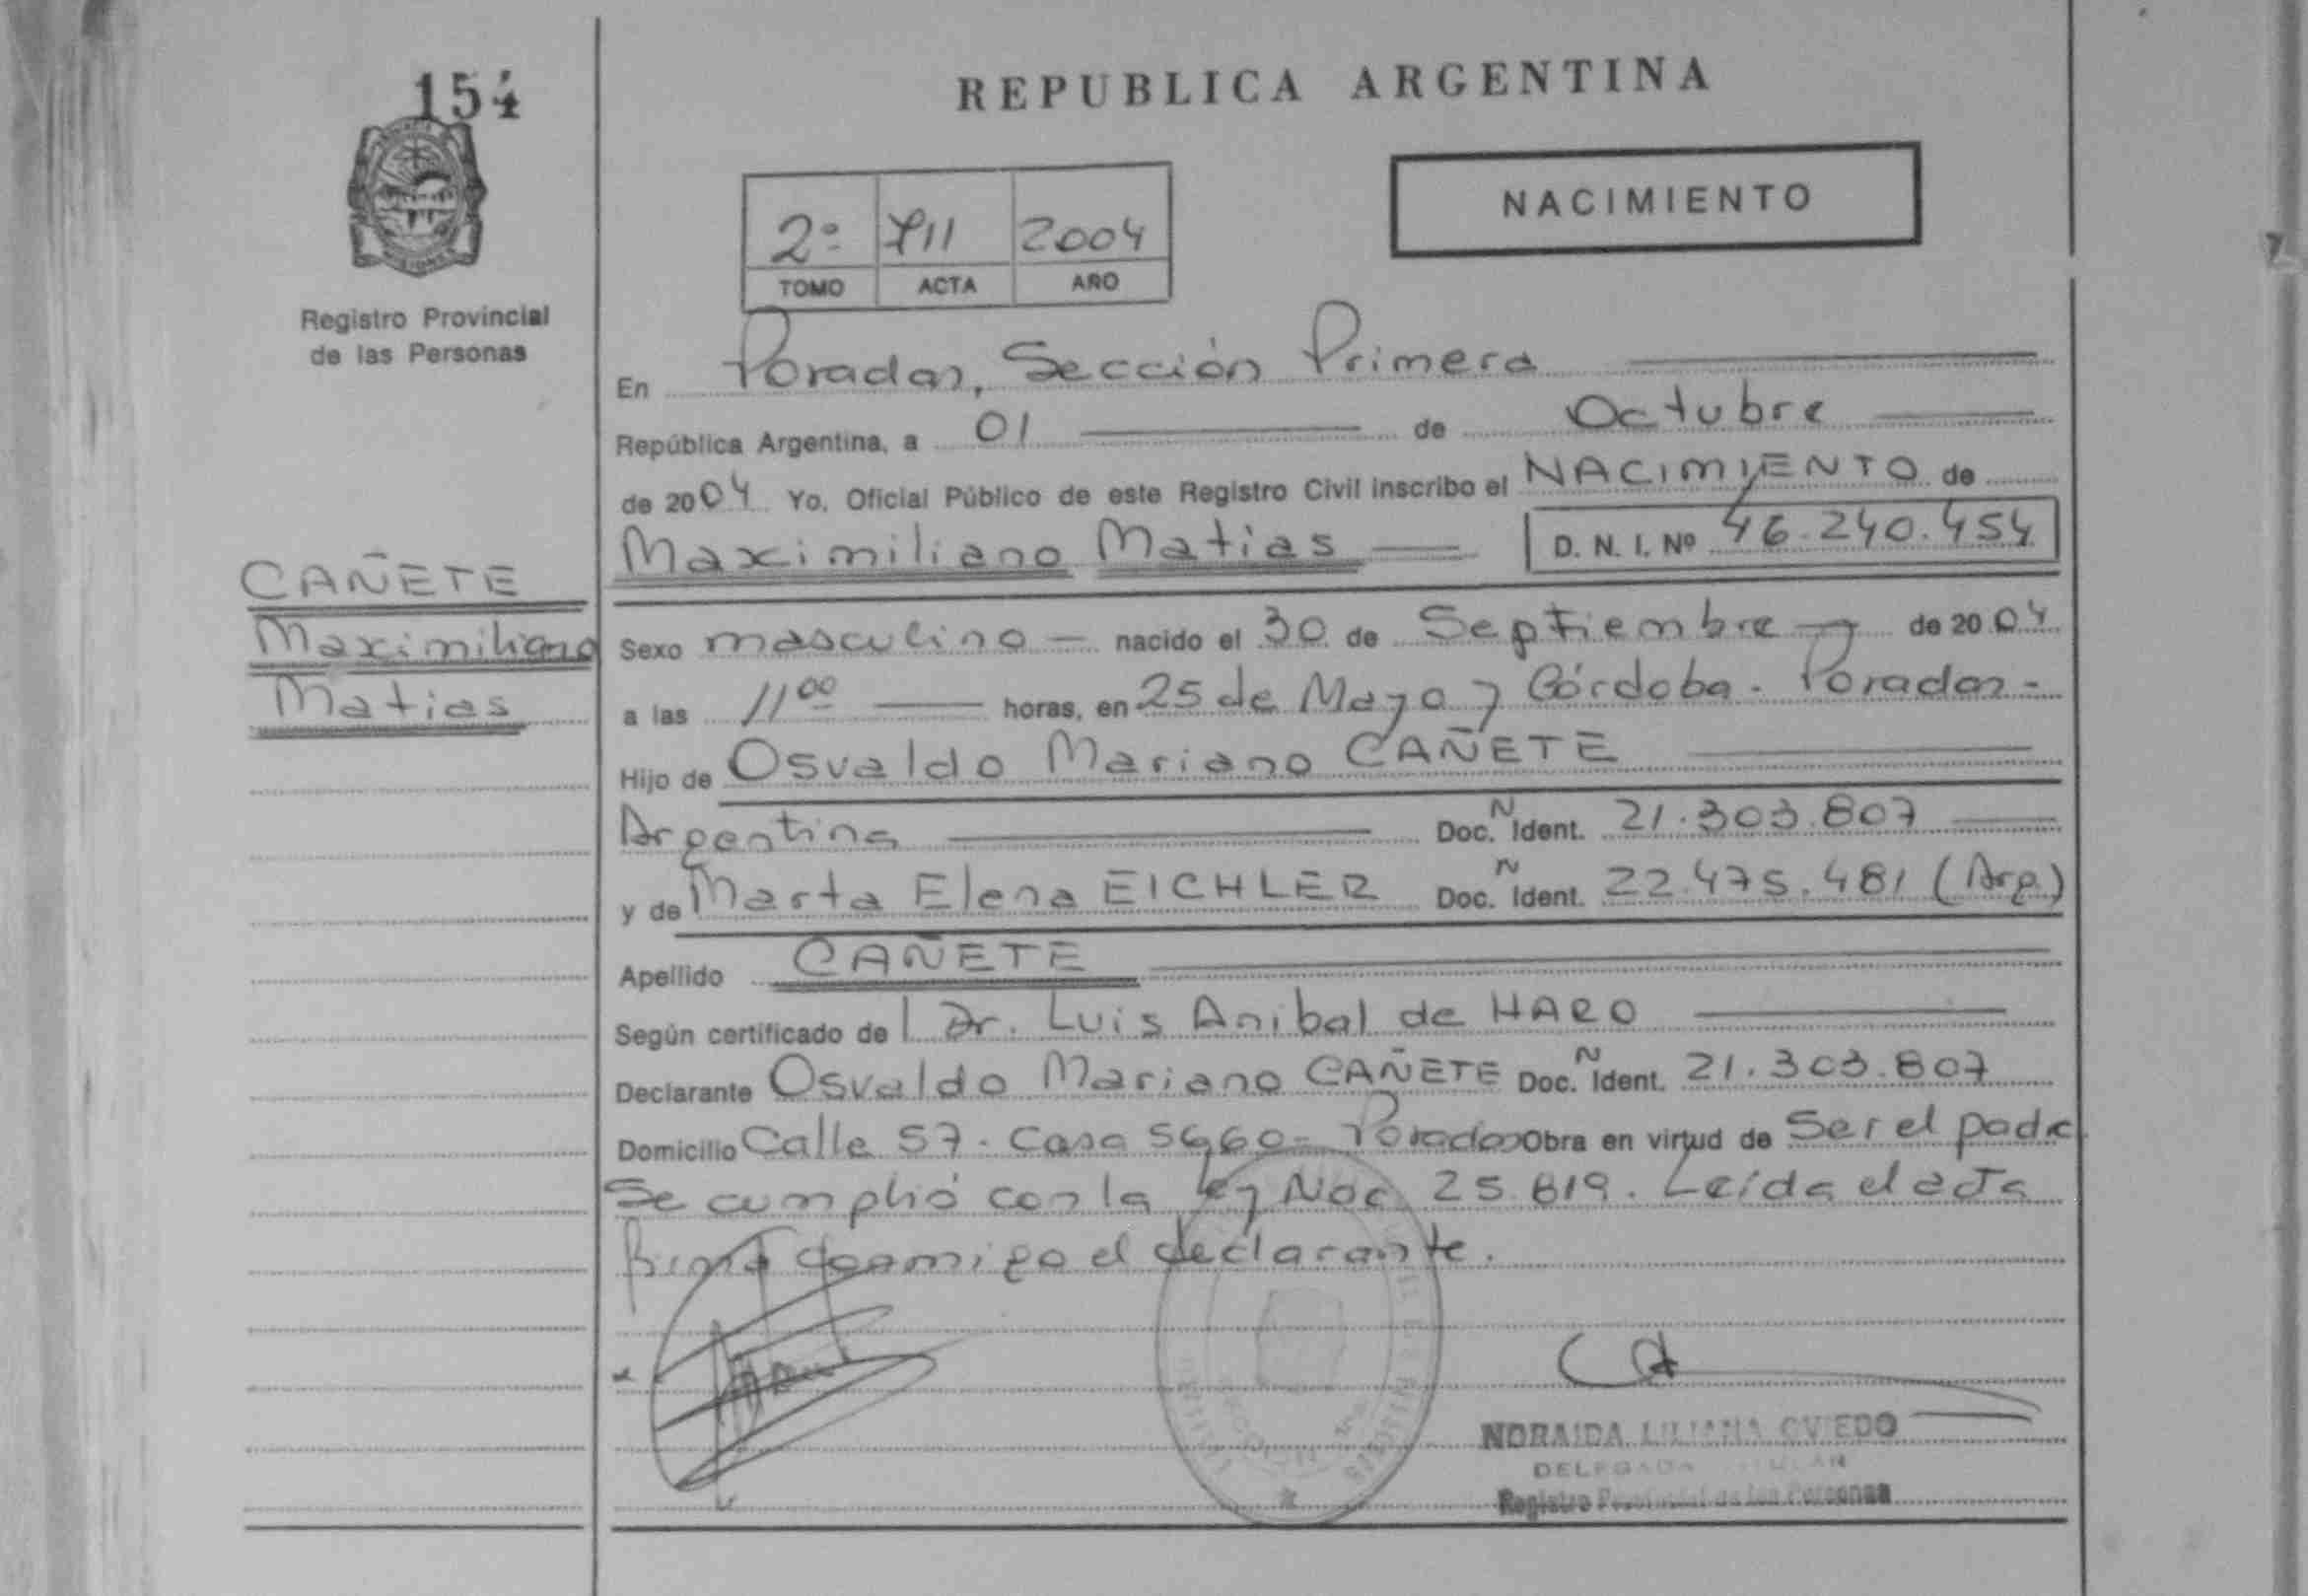 154
REPUBLICA ARGENTINA
NACIMIENTO
2º 711 2004
TOMO ACTA AÑO
Registro Provincial
de las Personas
En Posadas, Sección Primera
República Argentina, a 01 de Octubre
de 2004 Yo, Oficial Público de este Registro Civil inscribo el NACIMIENTO de
Maximiliano Matias D. N. I. Nº 46.240.454
CAÑETE
Maximiliano
Matias
Sexo masculino - nacido el 30 de Septiembre de 2004
a las 11 00 horas, en 25 de Mayo y Córdoba - Posadas -
Hijo de Osvaldo Mariano CAÑETE
Argentina Doc. Ñ Ident. 21.303.807
y de Marta Elena EICHLER Doc. Ñ Ident. 22.475.481 (Arg)
Apellido CAÑETE
Según certificado de l Dr. Luis Anibal de HARO
Declarante Osvaldo Mariano CAÑETE Doc. Ñ Ident. 21.303.807
Domicilio Calle 57 - Casa 5660 - Posadas Obra en virtud de Ser el padre
Se cumplió con la Ley Nac 25.819. Leída el acta
firma conmigo el declarante.
NORAIDA LILIANA OVIEDO
DELEGADA TITULAR
Registro Provincial de las Personas